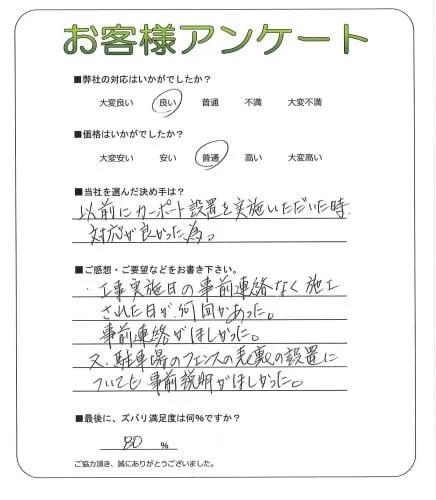 お客様アンケート
■弊社の対応はいかがでしたか？
大変良い 良い 普通 不満 大変不満
■価格はいかがでしたか？
大変安い 安い 普通 高い 大変高い
■当社を選んだ決め手は？
以前にカーポート設置を実施いただいた時、
対応が良かった為。
■ご感想・ご要望などをお書き下さい。
・工事実施日の事前連絡なく施工
された日が、何回かあった。
事前連絡がほしかった。
又、駐車場のフェンスの表裏の設置に
ついても事前説明がほしかった。
■最後に、ズバリ満足度は何％ですか？
80 ％
ご協力頂き、誠にありがとうございました。